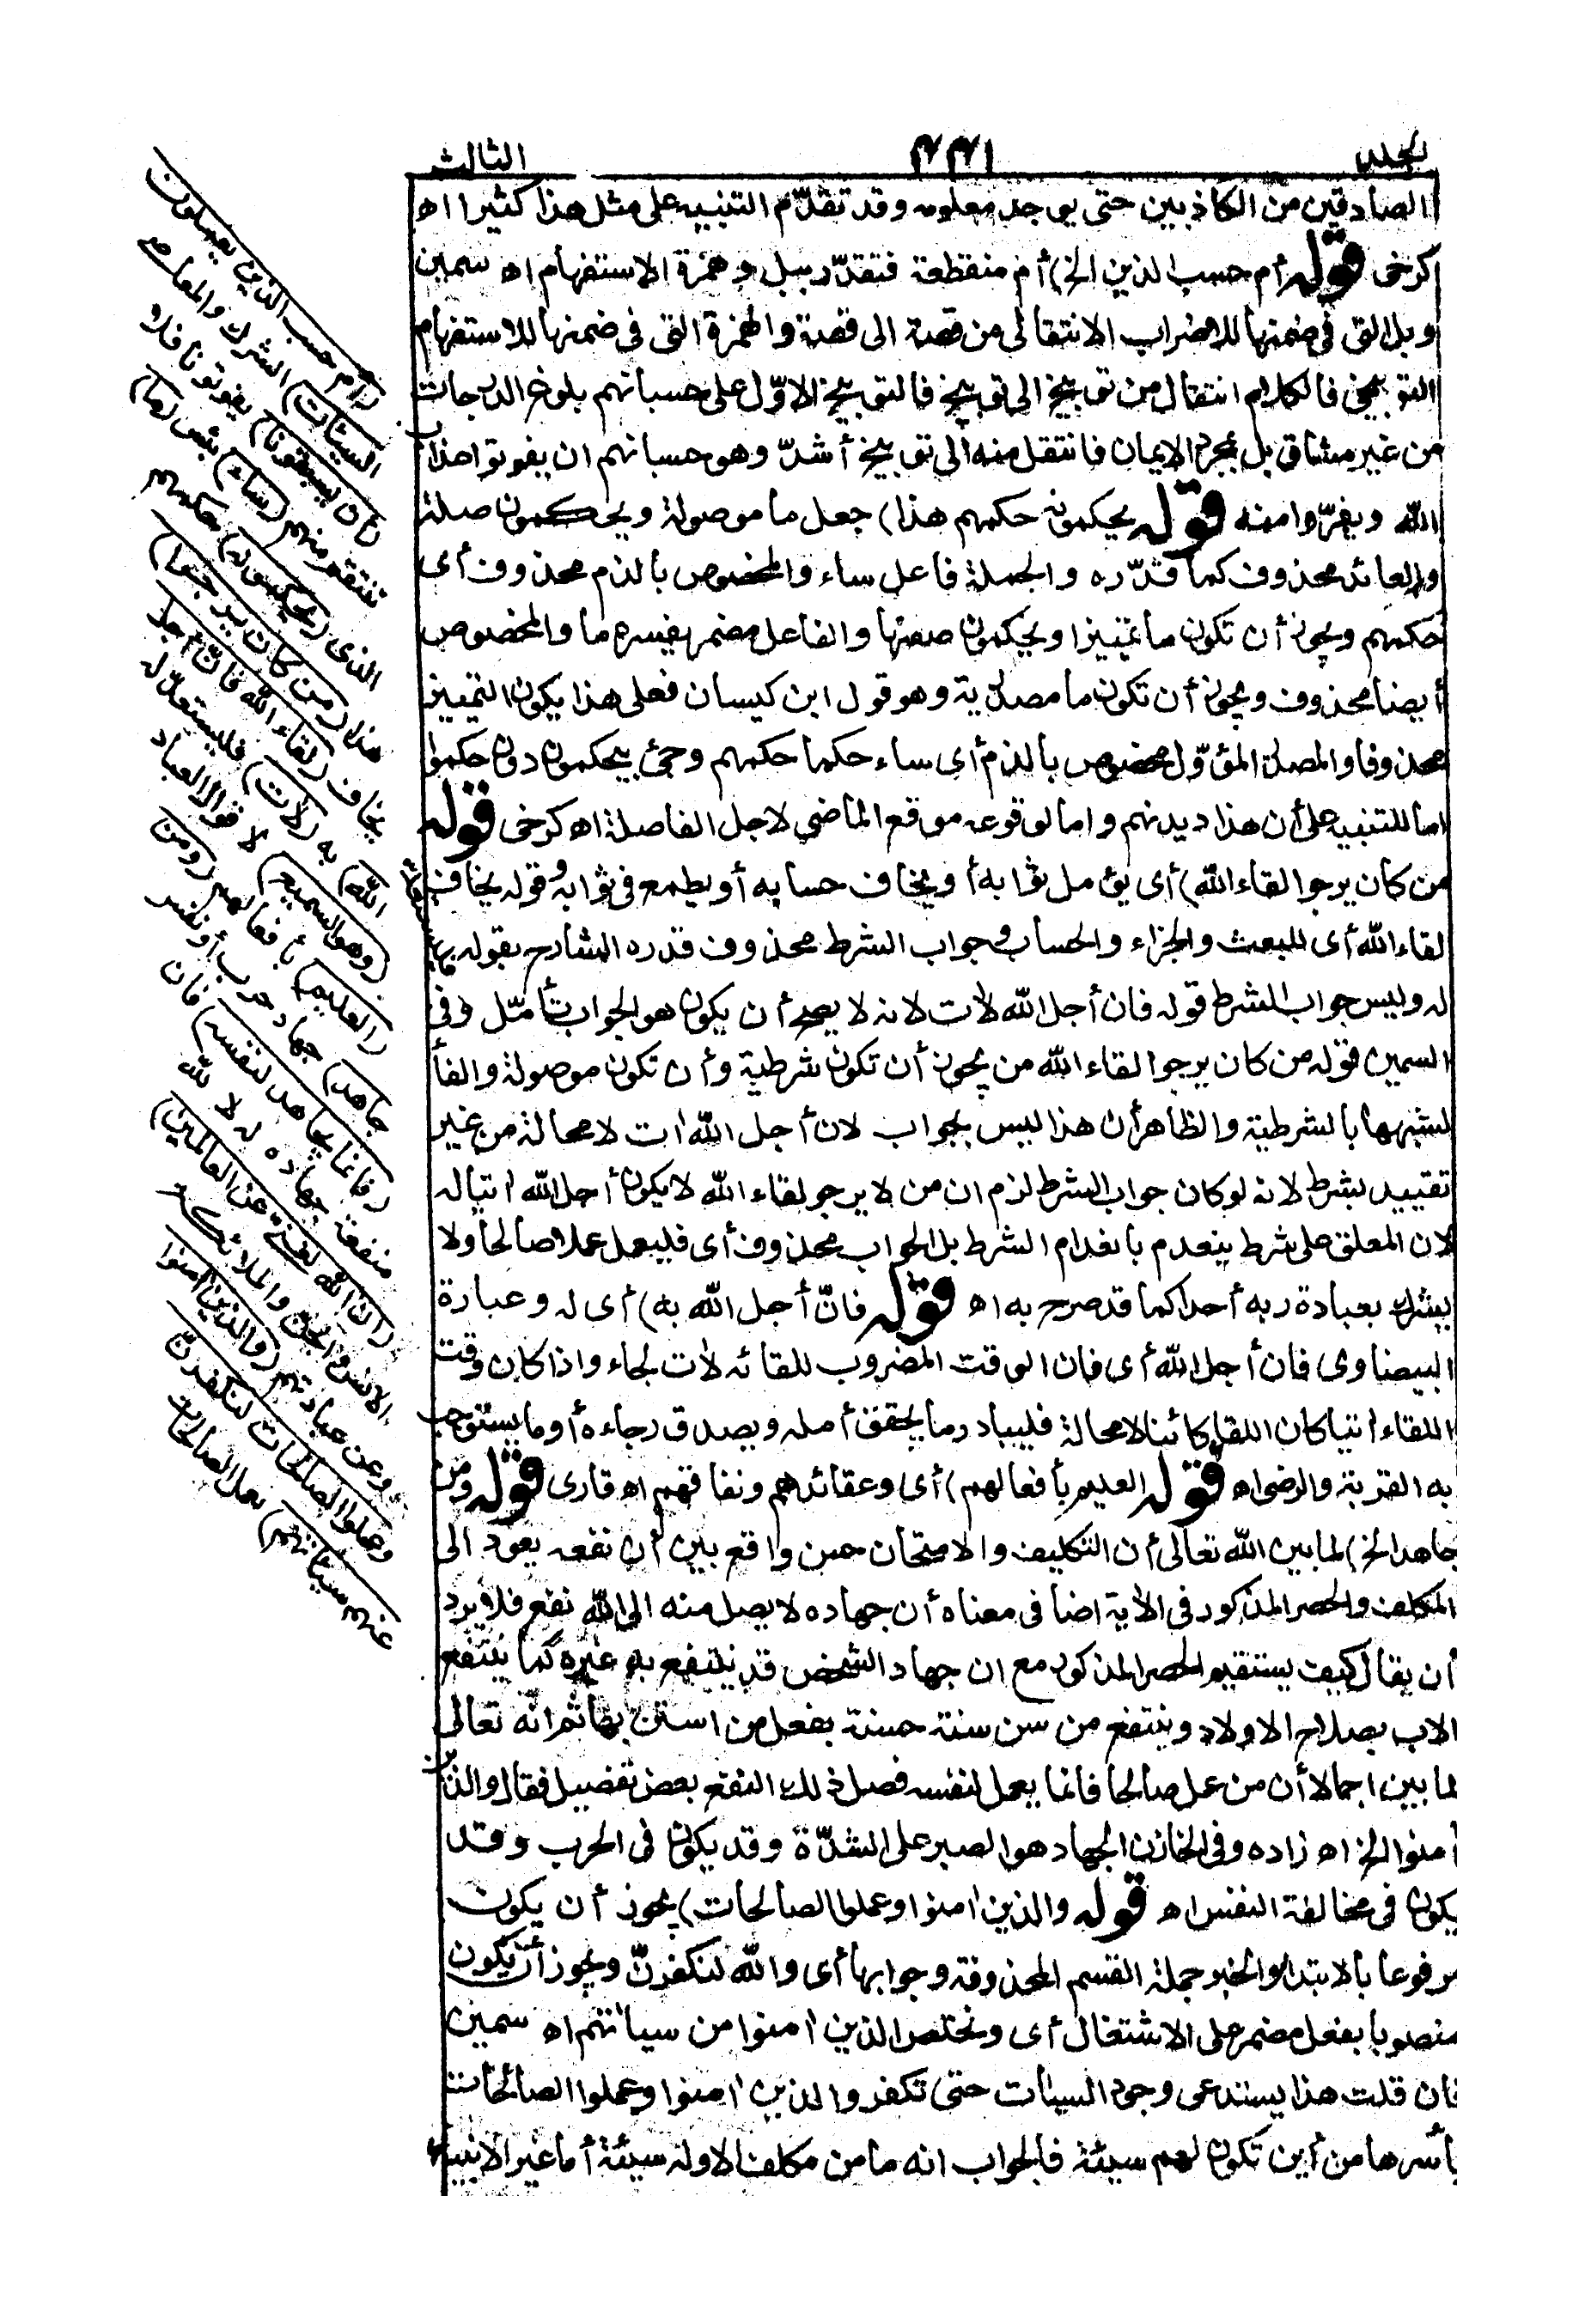 المجلد
٤٤١
الثالث
الصادقين من الكاذبين حتى يوجد معلومه وقد تقدّم التنبيه على مثل هذا كثيرا اه
كرخى قوله أم حسب الذين الخ) أم منقطعة فتقدّر ببل وهمزة الاستفهام اه سمين
وبل التى فى ضمنها للاضراب الانتقالى من قصة الى قصة والهمزة التى فى ضمنها للاستفهام
التوبيخى فالكلام انتقال من توبيخ الى توبيخ فالتوبيخ الاوّل على حسبانهم بلوغ الدرجات
من غير مشاق بل بمجرد الايمان فانتقل منه الى توبيخ أشدّ وهو حسبانهم ان يفوتوا عذاب
الله ويفرّوا منه قوله يحكمونه حكمهم هذا) جعل ما موصولة ويحكمون صلة
والعائد محذوف كما قدّره والجملة فاعل ساء والمخصوص بالذم محذوف أى
حكمهم ويجوز أن تكون ما تمييزا ويحكمون صفتها والفاعل مضمر يفسره ما والمخصوص
أيضا محذوف ويجوز أن تكون ما مصدرية وهو قول ابن كيسان فعلى هذا يكون التمييز
محذوفا والمصدر المؤوّل مخصوص بالذم أى ساء حكما حكمهم وجئ بيحكمون دون حكموا
اما للتنبيه على أن هذا ديدنهم واما لوقوعه موقع الماضي لاجل الفاصلة اه كرخى قوله
من كان يرجوا لقاء الله) أى يؤمل ثوابه أو يخاف حسابه أو يطمع فى ثوابه وقوله يخاف
لقاء الله أى للبعث والجزاء والحساب وجواب الشرط محذوف قدره الشارح بقوله
له وليس جواب الشرط قوله فان أجل الله لآت لانه لا يصح أن يكون هو الجواب تأمّل وفى
السمين قوله من كان يرجوا لقاء الله من يجوز أن تكون شرطية وأن تكون موصولة والفأ
لشبهها بالشرطية والظاهر أن هذا ليس بجواب لان أجل الله اٰت لا محالة من غير
تقييد بشرط لانه لو كان جواب الشرط لزم ان من لا يرجو لقاء الله لا يكون أجل الله اٰتيا له
لان المعلق على شرط ينعدم بانعدام الشرط بل الجواب محذوف أى فليعمل عملا صالحا ولا
يشرك بعبادة ربه أحدا كما قد صرح به اه قوله فانّ أجل الله به) أى له وعبارة
البيضاوى فان أجل الله أى فان الوقت المضروب للقائه لاٰت لجاء واذا كان وقت
اللقاء اٰتيا كان اللقاء كائنا لا محالة فليبادر ما يحقق أمله ويصدق رجاءه أو ما يستوجب
به القربة والرضى اه قوله العليم بأفعالهم) أى وعقائدهم ونفاقهم اه قارى قوله ومن
جاهد الخ) لما بين الله تعالى أن التكليف والامتحان حسن واقع بين أن نفعه يعود الى
المكلف والحصر المذكور فى الاٰية اضافى معناه أن جهاده لا يصل منه الى الله نفع فلا يرد
أن يقال كيف يستقيم الحصر المذكور مع ان جهاد الشخص قد ينتفع به غيره كما ينتفع
الاب بصلاح الاولاد وينتفع من سن سنة حسنة بفعل من استن بها ثم انه تعالى
لما بين اجمالا أن من عمل صالحا فانما يعمل لنفسه فصل ذلك النفع بعض تفصيل فقال والذين
اٰمنوا الخ اه زاده وفى الخازن الجهاد هو الصبر على الشدّة وقد يكون فى الحرب وقد
يكون فى مخالفة النفس اه قوله والذين اٰمنوا وعملوا الصالحات) يجوز أن يكون
مرفوعا بالابتداء والخبر جملة القسم المحذوفة وجوابها أى والله لنكفرنّ ويجوز أن يكون
منصوبا بفعل مضمر على الاشتغال أى ونخلص الذين اٰمنوا من سياٰتهم اه سمين
فان قلت هذا يستدعى وجود السياٰت حتى تكفر والذين اٰمنوا وعملوا الصالحات
بأسرها من أين تكون لهم سيئة فالجواب انه ما من مكلف الا وله سيئة أما غير الانبياء
(أم حسب الذين يعملون
السيئات) الشرك والمعاصى
(أن يسبقونا) يفوتونا فلا
ننتقم منهم (ساء) بئس (ما)
الذى (يحكمونه) حكمهم
هذا (من كان يرجوا)
يخاف (لقاء الله فانّ أجل
الله) به (لاٰت) فليستعدّ له
(وهو السميع) لاقوال العباد
(العليم) بأفعالهم (ومن
جاهد) جهاد حرب أو نفس
(فانما يجاهد لنفسه) فان
منفعة جهاده له لا لله
(ان الله لغنى عن العالمين)
الانس والجنّ والملائكة
وعن عبادتهم (والذين اٰمنوا
وعملوا الصالحات لنكفرنّ
عنهم سيئاتهم) بعمل الصالحات